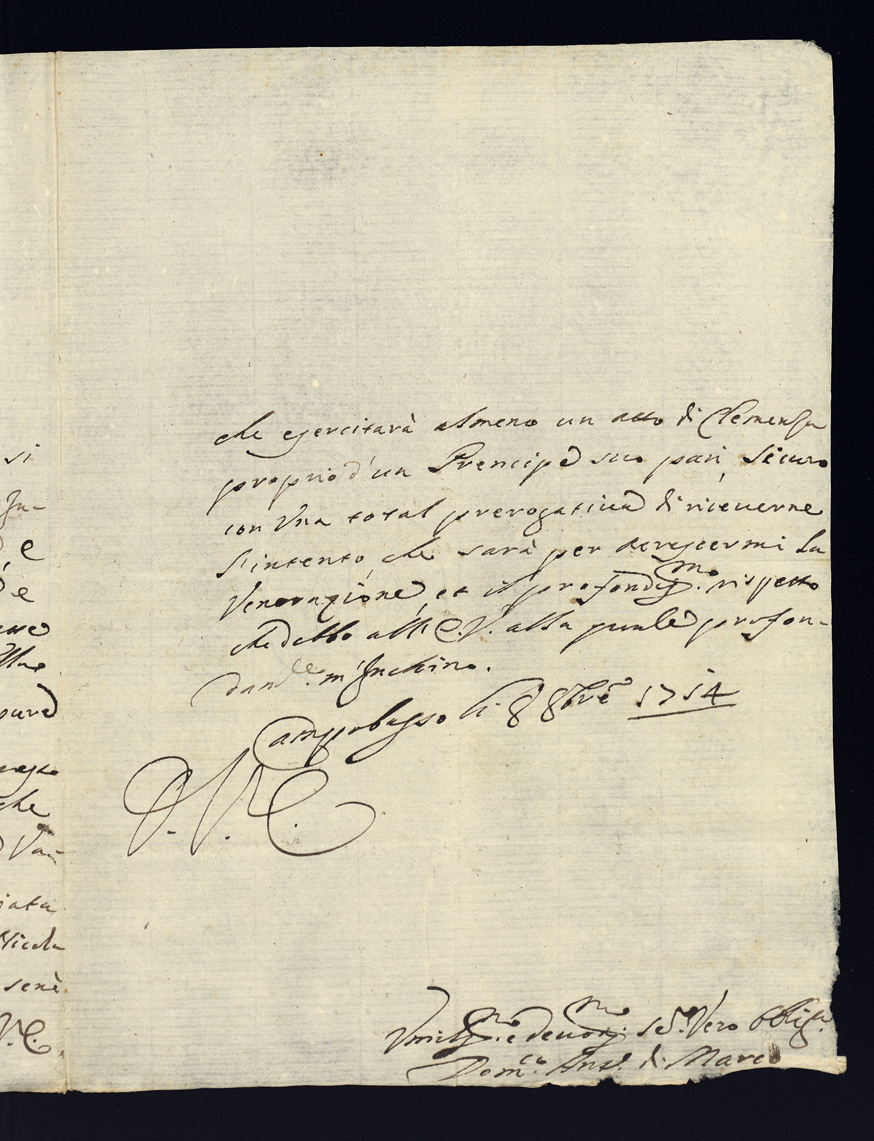 si
Ju-
e
e
pure
che
Va-
iata
Nicola
senè
V.E.
che esercitarà almeno un atto di Clemenza
proprio d'un Prencipe suo pari, sicuro
con Una total prerogativa di riceverne
l'intento, che sarà per accrescermi la
Venerazione, et il profondis.mo rispetto
che debbo all'E.V. alla quale profon-
dam.te m'Inchino.
Campobasso li 8 8bre 1714
D. V. E.
Umiliss.mo e devotiss.mo se.re Vero obblig.mo
Dom.co Ant.o di Marco